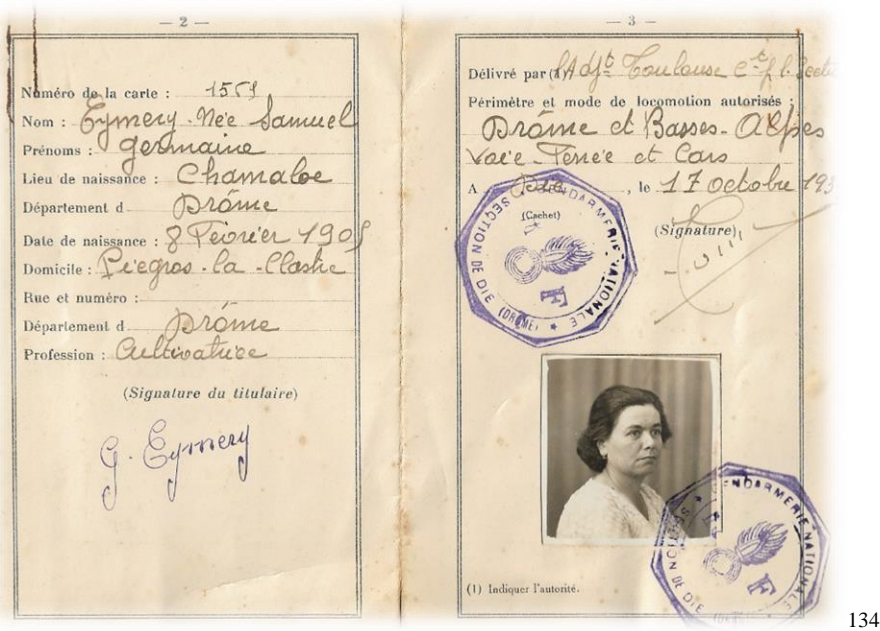 — 2 —
Numéro de la carte : 1559
Nom : Eymery - Née Samuel
Prénoms : Germaine
Lieu de naissance : Chamaloc
Département d Drôme
Date de naissance : 8 Février 1905
Domicile : Piégros-la-Clastre
Rue et numéro :
Département d Drôme
Profession : Cultivatrice
(Signature du titulaire)
G. Eymery
— 3 —
Délivré par (1) l'Adjt Toulouse Ct l.
Périmètre et mode de locomotion autorisés :
Drôme et Basses-Alpes
Voie Ferrée et Cars
A Die, le 17 octobre 193
(Cachet)
(Signature)
GENDARMERIE NATIONALE ★ SECTION DE DIE (DROME) ★
GENDARMERIE NATIONALE ★ SECTION DE DIE
(1) Indiquer l'autorité.
134